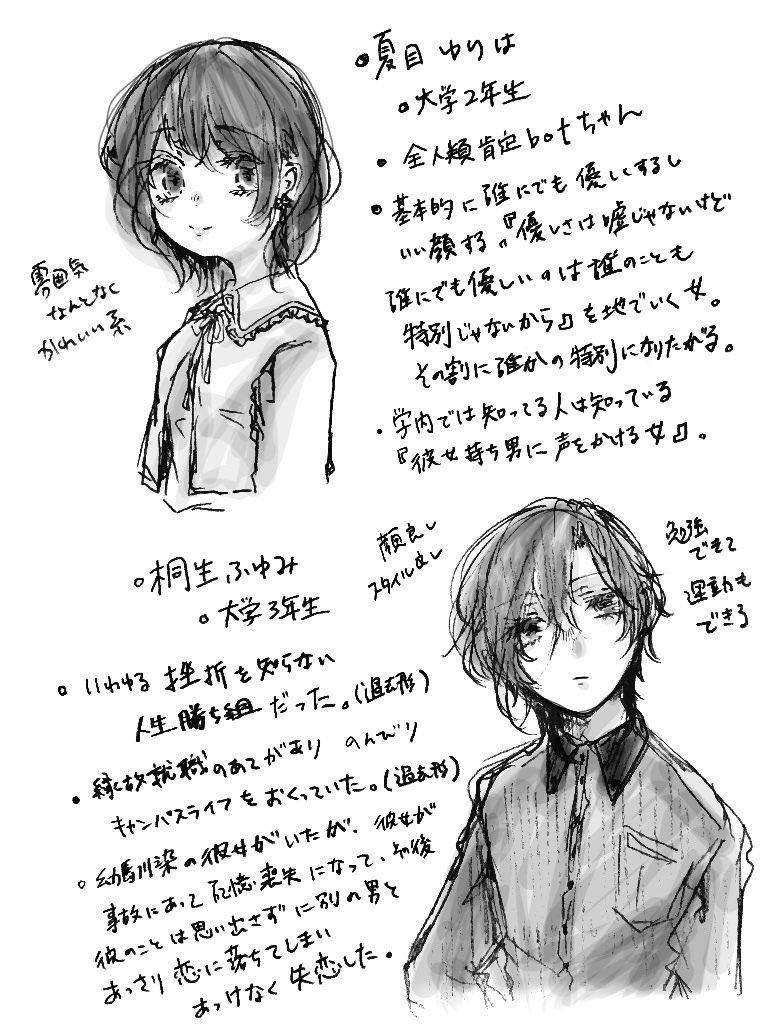 夏目 ゆりは
大学2年生
全人類肯定botちゃん
基本的に誰にでも優しくするし
いい顔する。『優しさは嘘じゃないけど
誰にでも優しいのは誰のことも
特別じゃないから』を地でいく女。
その割に誰かの特別になりたがる。
学内では知ってる人は知っている
『彼女持ち男に声をかける女』。
雰囲気
なんとなく
かわいい系
顔良し
スタイル良し
勉強
できて
運動も
できる
桐生 ふゆみ
大学3年生
いわゆる 挫折を知らない
人生勝ち組 だった。(過去形)
縁故就職のあてがあり のんびり
キャンパスライフをおくっていた。(過去形)
幼馴染の彼女がいたが、彼女が
事故にあって記憶喪失になって、その後
彼のことは思い出さずに別の男と
あっさり恋に落ちてしまい
あっけなく失恋した。